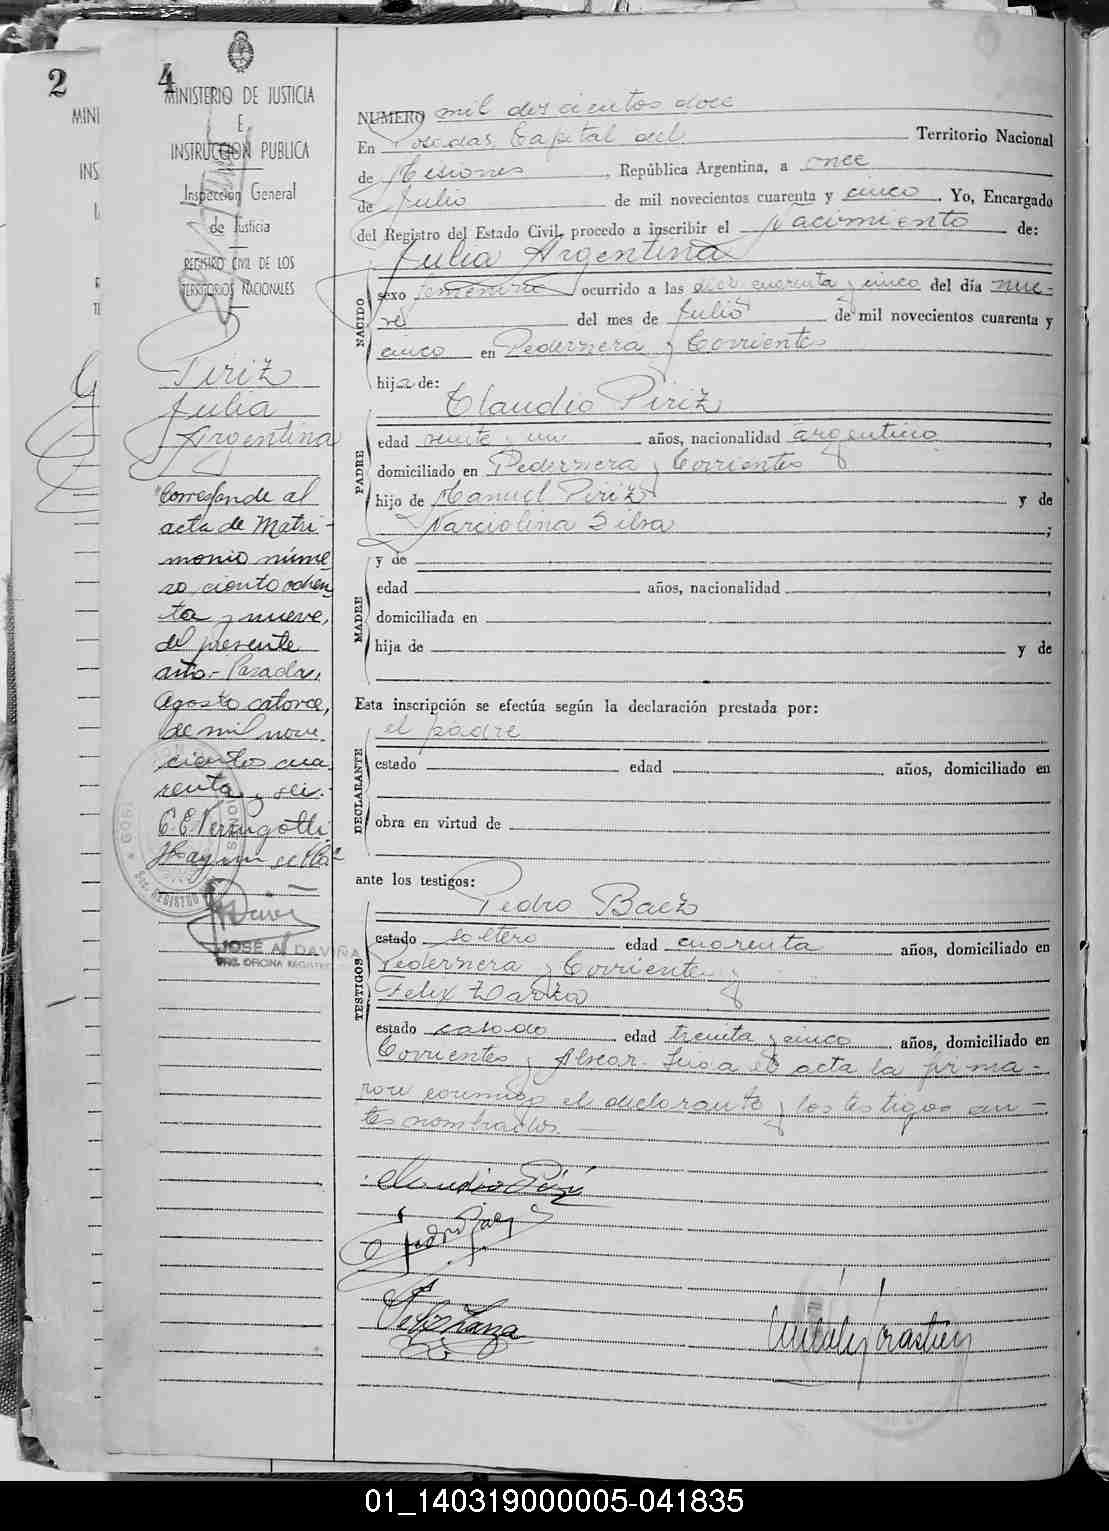 2
MINI
INS
4
MINISTERIO DE JUSTICIA
E
INSTRUCCION PUBLICA
Inspección General
de Justicia
REGISTRO CIVIL DE LOS
TERRITORIOS NACIONALES
Piriz
Julia
Argentina
Corresponde al
acta de Matri-
monio núme
ro, ciento ochen
ta y nueve,
del presente
año.- Posadas,
Agosto catorce,
de mil nove
cientos cua
renta y seis.-
JOSE A. DAVIÑA
NUMERO mil doscientos doce
En Posadas, Capital del Territorio Nacional
de Misiones, República Argentina, a once
de Julio de mil novecientos cuarenta y cinco. Yo, Encargado
del Registro del Estado Civil, procedo a inscribir el Nacimiento de:
Julia Argentina
NACIDO
sexo femenino ocurrido a las diez cuarenta y cinco del día nue-
ve del mes de Julio de mil novecientos cuarenta y
cinco en Pedernera y Corrientes
hija de:
Claudio Piriz
PADRE
edad veinte y un años, nacionalidad argentino,
domiciliado en Pedernera y Corrientes
hijo de Manuel Piriz y de
Narciolina Silva;
MADRE
y de
edad años, nacionalidad ,
domiciliada en
hija de y de
Esta inscripción se efectúa según la declaración prestada por:
el padre
DECLARANTE
estado edad años, domiciliado en
obra en virtud de
ante los testigos:
Pedro Baez
TESTIGOS
estado soltero edad cuarenta años, domiciliado en
Pedernera y Corrientes y
Felix Zarza
estado casado edad treinta y cinco años, domiciliado en
Corrientes y Alvear. Leída el acta la firma-
ron conmigo el declarante y los testigos an-
tes nombrados.
Claudio Piriz
Pedro Baez
Felix Zarza
01_140319000005-041835